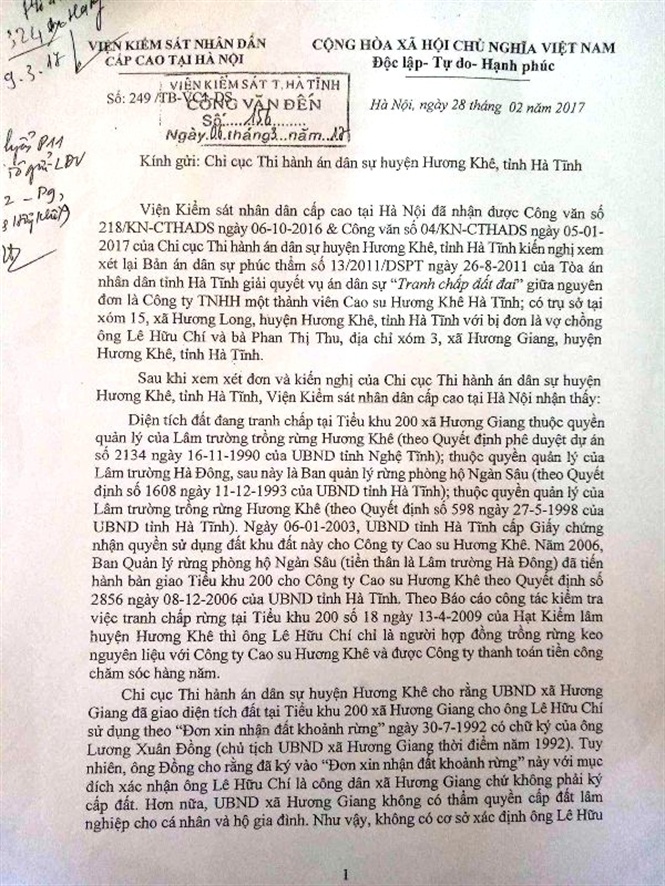 324
9.3.17
VIỆN KIỂM SÁT NHÂN DÂN
CẤP CAO TẠI HÀ NỘI
CỘNG HÒA XÃ HỘI CHỦ NGHĨA VIỆT NAM
Độc lập- Tự do- Hạnh phúc
Số: 249 /TB-VC1-DS
VIỆN KIỂM SÁT T. HÀ TĨNH
CÔNG VĂN ĐẾN
Số 156
Ngày 06 tháng 3 năm 17
Hà Nội, ngày 28 tháng 02 năm 2017
P11
2 - P9,
Kính gửi: Chi cục Thi hành án dân sự huyện Hương Khê, tỉnh Hà Tĩnh
Viện Kiểm sát nhân dân cấp cao tại Hà Nội đã nhận được Công văn số
218/KN-CTHADS ngày 06-10-2016 & Công văn số 04/KN-CTHADS ngày 05-01-
2017 của Chi cục Thi hành án dân sự huyện Hương Khê, tỉnh Hà Tĩnh kiến nghị xem
xét lại Bản án dân sự phúc thẩm số 13/2011/DSPT ngày 26-8-2011 của Tòa án
nhân dân tỉnh Hà Tĩnh giải quyết vụ án dân sự “Tranh chấp đất đai” giữa nguyên
đơn là Công ty TNHH một thành viên Cao su Hương Khê Hà Tĩnh; có trụ sở tại
xóm 15, xã Hương Long, huyện Hương Khê, tỉnh Hà Tĩnh với bị đơn là vợ chồng
ông Lê Hữu Chí và bà Phan Thị Thu, địa chỉ xóm 3, xã Hương Giang, huyện
Hương Khê, tỉnh Hà Tĩnh.
Sau khi xem xét đơn và kiến nghị của Chi cục Thi hành án dân sự huyện
Hương Khê, tỉnh Hà Tĩnh, Viện Kiểm sát nhân dân cấp cao tại Hà Nội nhận thấy:
Diện tích đất đang tranh chấp tại Tiểu khu 200 xã Hương Giang thuộc quyền
quản lý của Lâm trường trồng rừng Hương Khê (theo Quyết định phê duyệt dự án
số 2134 ngày 16-11-1990 của UBND tỉnh Nghệ Tĩnh); thuộc quyền quản lý của
Lâm trường Hà Đông, sau này là Ban quản lý rừng phòng hộ Ngàn Sâu (theo Quyết
định số 1608 ngày 11-12-1993 của UBND tỉnh Hà Tĩnh); thuộc quyền quản lý của
Lâm trường trồng rừng Hương Khê (theo Quyết định số 598 ngày 27-5-1998 của
UBND tỉnh Hà Tĩnh). Ngày 06-01-2003, UBND tỉnh Hà Tĩnh cấp Giấy chứng
nhận quyền sử dụng đất khu đất này cho Công ty Cao su Hương Khê. Năm 2006,
Ban Quản lý rừng phòng hộ Ngàn Sâu (tiền thân là Lâm trường Hà Đông) đã tiến
hành bàn giao Tiểu khu 200 cho Công ty Cao su Hương Khê theo Quyết định số
2856 ngày 08-12-2006 của UBND tỉnh Hà Tĩnh. Theo Báo cáo công tác kiểm tra
việc tranh chấp rừng tại Tiểu khu 200 số 18 ngày 13-4-2009 của Hạt Kiểm lâm
huyện Hương Khê thì ông Lê Hữu Chí chỉ là người hợp đồng trồng rừng keo
nguyên liệu với Công ty Cao su Hương Khê và được Công ty thanh toán tiền công
chăm sóc hàng năm.
Chi cục Thi hành án dân sự huyện Hương Khê cho rằng UBND xã Hương
Giang đã giao diện tích đất tại Tiểu khu 200 xã Hương Giang cho ông Lê Hữu Chí
sử dụng theo “Đơn xin nhận đất khoảnh rừng” ngày 30-7-1992 có chữ ký của ông
Lương Xuân Đồng (chủ tịch UBND xã Hương Giang thời điểm năm 1992). Tuy
nhiên, ông Đồng cho rằng đã ký vào “Đơn xin nhận đất khoảnh rừng” này với mục
đích xác nhận ông Lê Hữu Chí là công dân xã Hương Giang chứ không phải ký
cấp đất. Hơn nữa, UBND xã Hương Giang không có thẩm quyền cấp đất lâm
nghiệp cho cá nhân và hộ gia đình. Như vậy, không có cơ sở xác định ông Lê Hữu
1